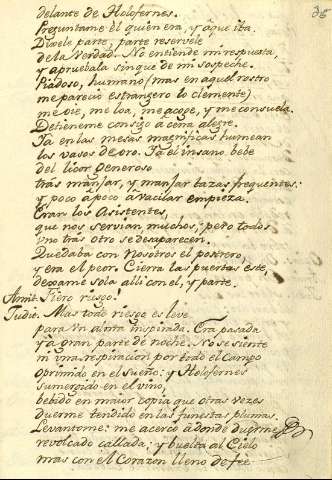 delante de Holofernes.
Preguntame él quien era, y à que iba.
Dixele parte, parte reservéle
de la Verdad. No entiende mi respuesta,
y apruebala sin que de mi sospeche.
Piadoso, humano (mas en aquel rostro
me pareciò estrangero lo clemente)
me oie, me loa, me acoge, y me consuela.
Detieneme consigo à cena alegre.
Ya en las mesas magnificas humean
los vasos de oro. Ya el insano bebe
del licor generoso
tras manjar, y manjar tazas frequentes:
y poco à poco à vacilar empieza.
Eran los Asistentes,
que nos servian muchos; pero todos
uno tras otro se desaparecen.
Quedaba con nosotros el postrero,
y era el peor. Cierra las puertas éste,
dexame sola alli con el, y parte.
Amit. Fiero riesgo!
Judic. Mas todo riesgo es leve
para un alma inspirada. Era pasada
ya gran parte de noche. No se siente
ni una respiracion por todo el campo
oprimido en el sueño: y Holofernes
sumergido en el vino,
bebido en maior copia que otras vezes
duerme tendido en las funestas plumas.
Levantome: me acercò à donde duerme
revolcado callada; y buelta al Cielo
mas con el Corazon lleno de fee